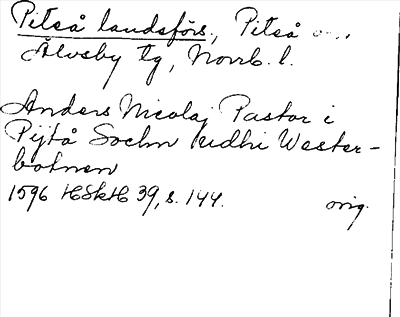 Piteå landsförs., Piteå o. .
Älvsby tg, Norrb. l.
Anders Nicolaj Pastor i
Pijtå Sochn udhi Wester-
botnen
1596 HSkH 39, s. 144. orig.